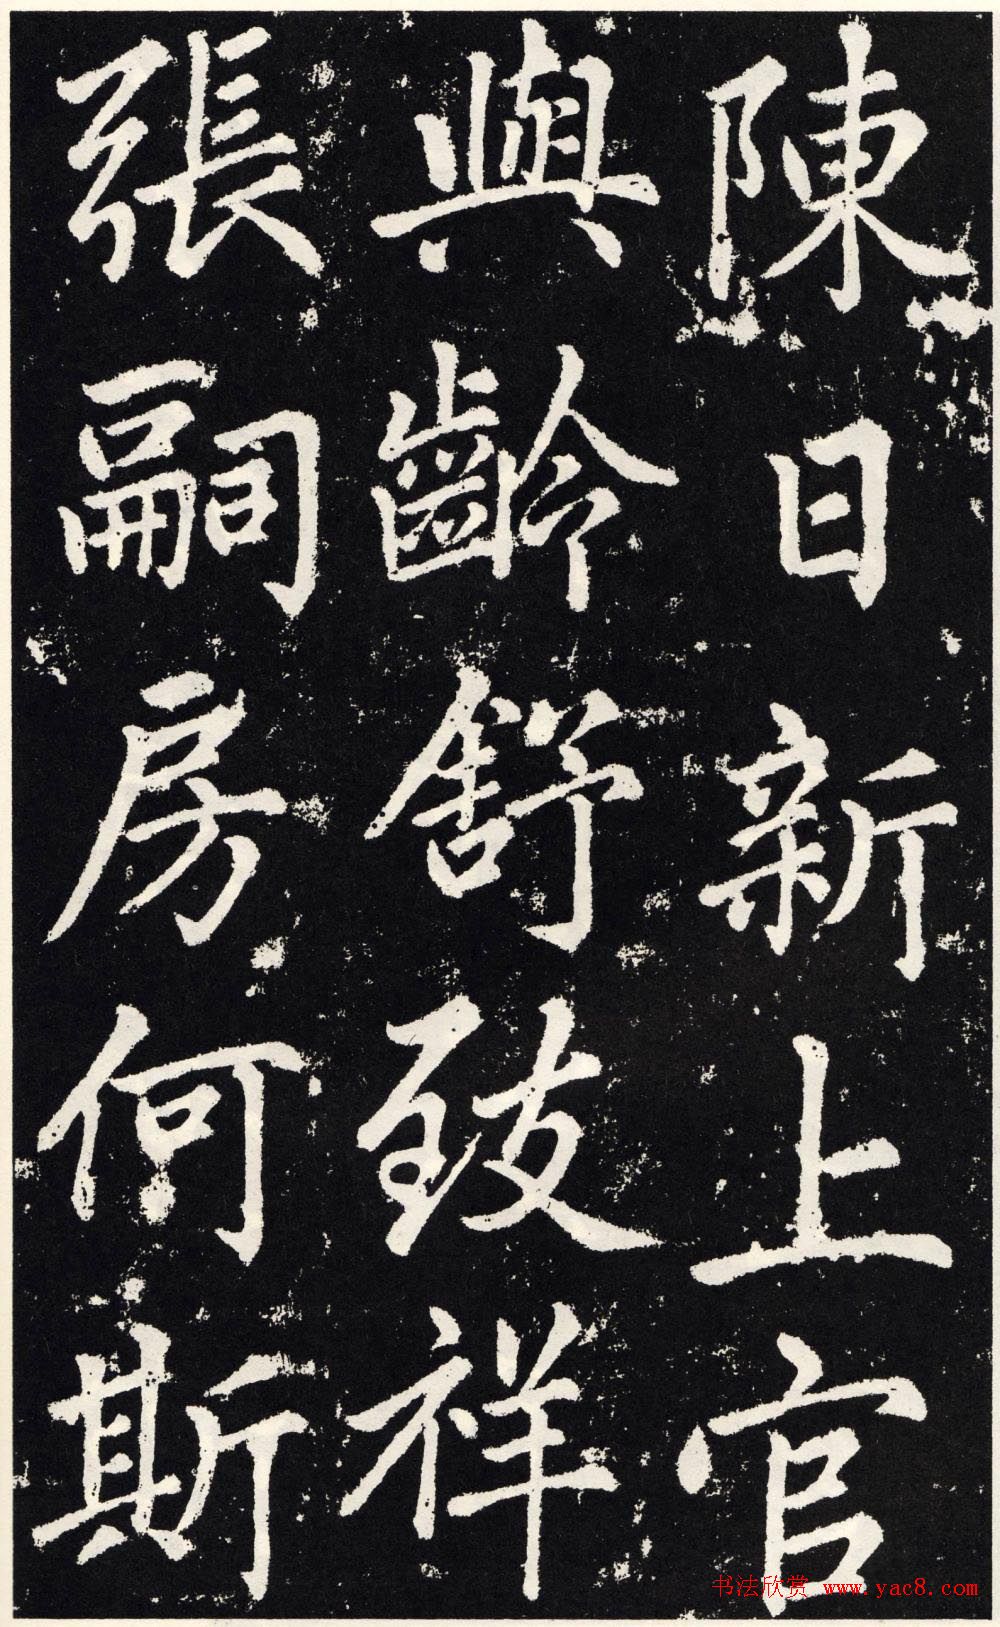 陳日新上官
與齡舒致祥
張嗣房何斯
书法欣赏 www.yac8.com